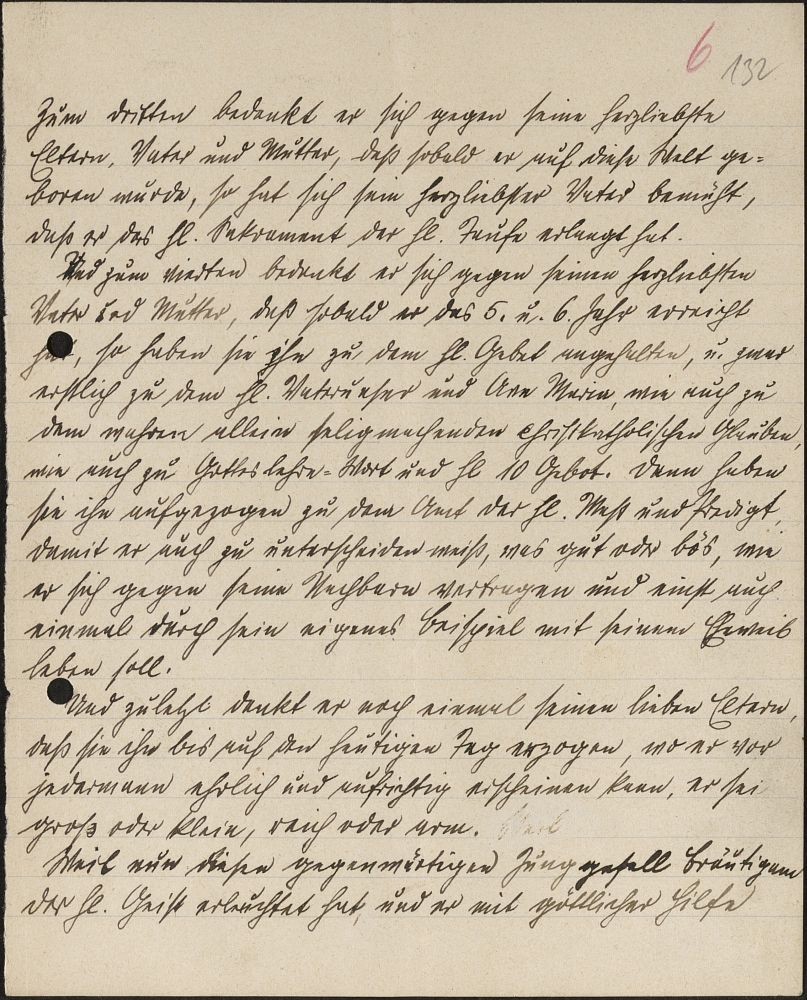 6 132
Zum dritten bedankt er sich gegen seine herzliebste
Eltern, Vater und Mutter, daß sobald er auf diese Welt ge=
boren wurde, so hat sich sein herzliebster Vater bemüht,
daß er das hl. Sakrament der hl. Taufe erlangt hat.
Und zum vierten bedankt er sich gegen seinen herzliebsten
Vater und Mutter, daß sobald er das 5. u. 6. Jahr erreicht
hat, so haben sie ihn zu dem hl. Gebet angehalten, u. zwar
erstlich zu dem hl. Vaterunser und Ave Maria, wie auch zu
dem wahren allein seligmachenden christkatholischen Glauben,
wie auch zu Gottes Lehre=Wort und hl 10 Gebot. Dann haben
sie ihn aufgezogen zu dem Amt der hl. Meß und Predigt,
damit er auch zu unterscheiden weiß, was gut oder bös, wie
er sich gegen seine Nachbarn vertragen und einst auch
einmal durch sein eigenes Beispiel mit seinem Eheweib
leben soll.
Und zuletzt dankt er noch einmal seinen lieben Eltern,
daß sie ihn bis auf den heutigen Tag erzogen, wo er vor
jedermann ehrlich und aufrichtig erscheinen kann, er sei
groß oder klein, reich oder arm.
Weil nun diesen gegenwärtigen Junggesell Bräutigam
der hl. Geist erleuchtet hat, und er mit göttlicher Hilfe